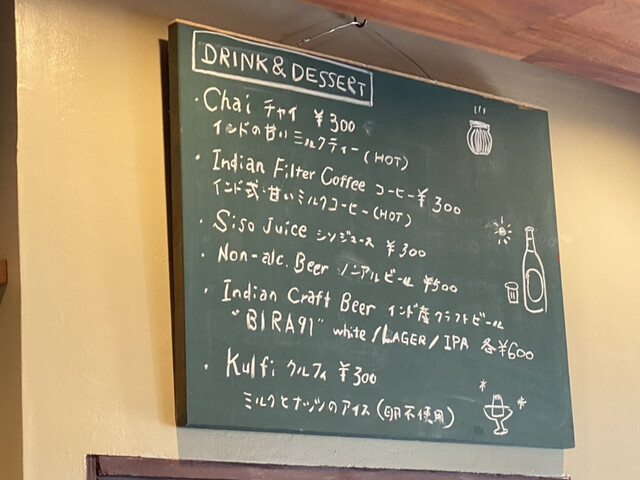 DRINK & DESSERT
・Chai チャイ ¥300
インドの甘いミルクティー(HOT)
・Indian Filter Coffee コーヒー ¥300
インド式・甘いミルクコーヒー(HOT)
・Siso Juice シソジュース ¥300
・Non-alc. Beer ノンアルビール ¥500
・Indian Craft Beer インド産クラフトビール
"BIRA91" white/LAGER/IPA 各¥600
・Kulfi クルフィ ¥300
ミルクとナッツのアイス(卵不使用)